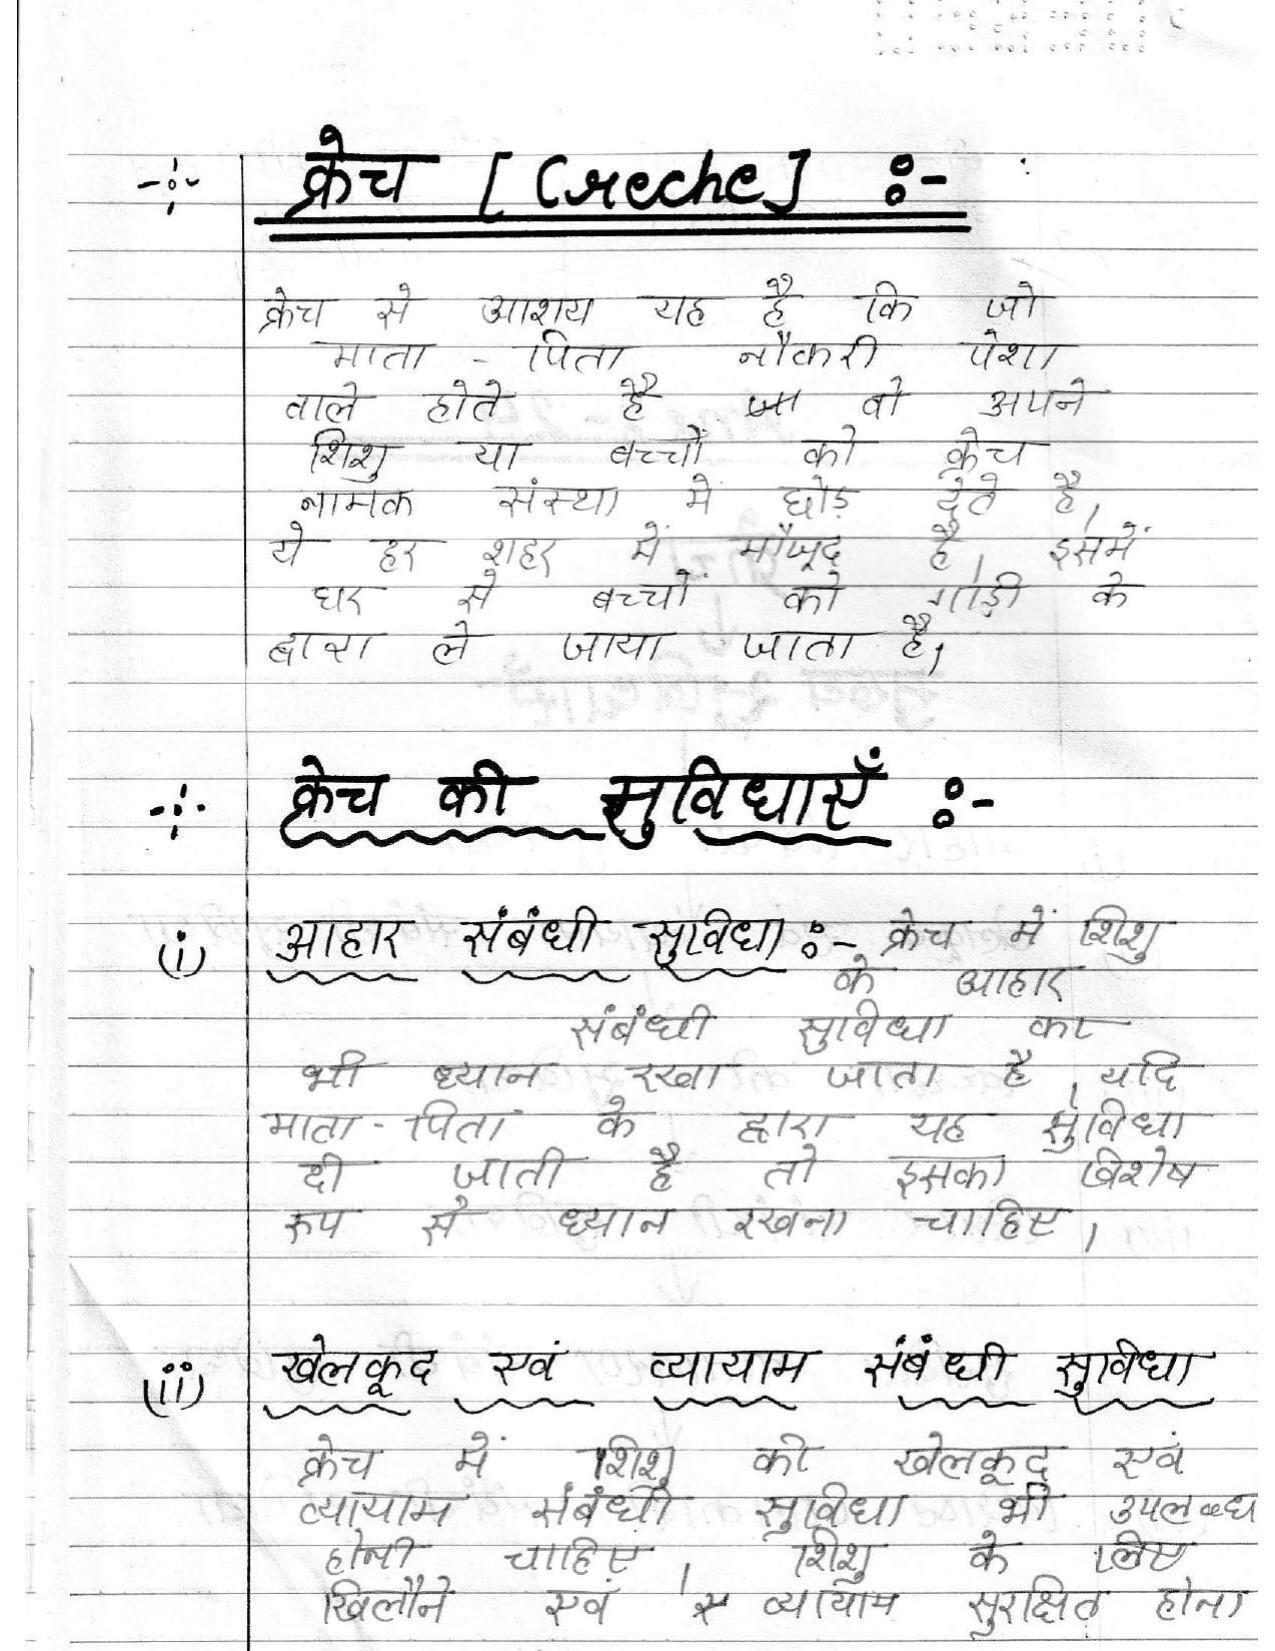 क्रेच [Creche] :-
क्रेच से आशय यह है कि जो
माता - पिता नौकरी पेशा
वाले होते है वो अपने
शिशु या बच्चों को क्रेच
नामक संस्था में छोड़ देते है,
ये हर शहर में मौजूद है, इसमें
घर से बच्चों को गाड़ी के
द्वारा ले जाया जाता है,
क्रेच की सुविधाएँ :-
(i) आहार संबंधी सुविधा :- क्रेच में शिशु
के आहार
संबंधी सुविधा का
भी ध्यान रखा जाता है, यदि
माता - पिता के द्वारा यह सुविधा
दी जाती है तो इसका विशेष
रूप से ध्यान रखना चाहिए,
(ii) खेलकूद एवं व्यायाम संबंधी सुविधा
क्रेच में शिशु की खेलकूद एवं
व्यायाम संबंधी सुविधा भी उपलब्ध
होनी चाहिए, शिशु के लिए
खिलौने एवं व्यायाम सुरक्षित होना